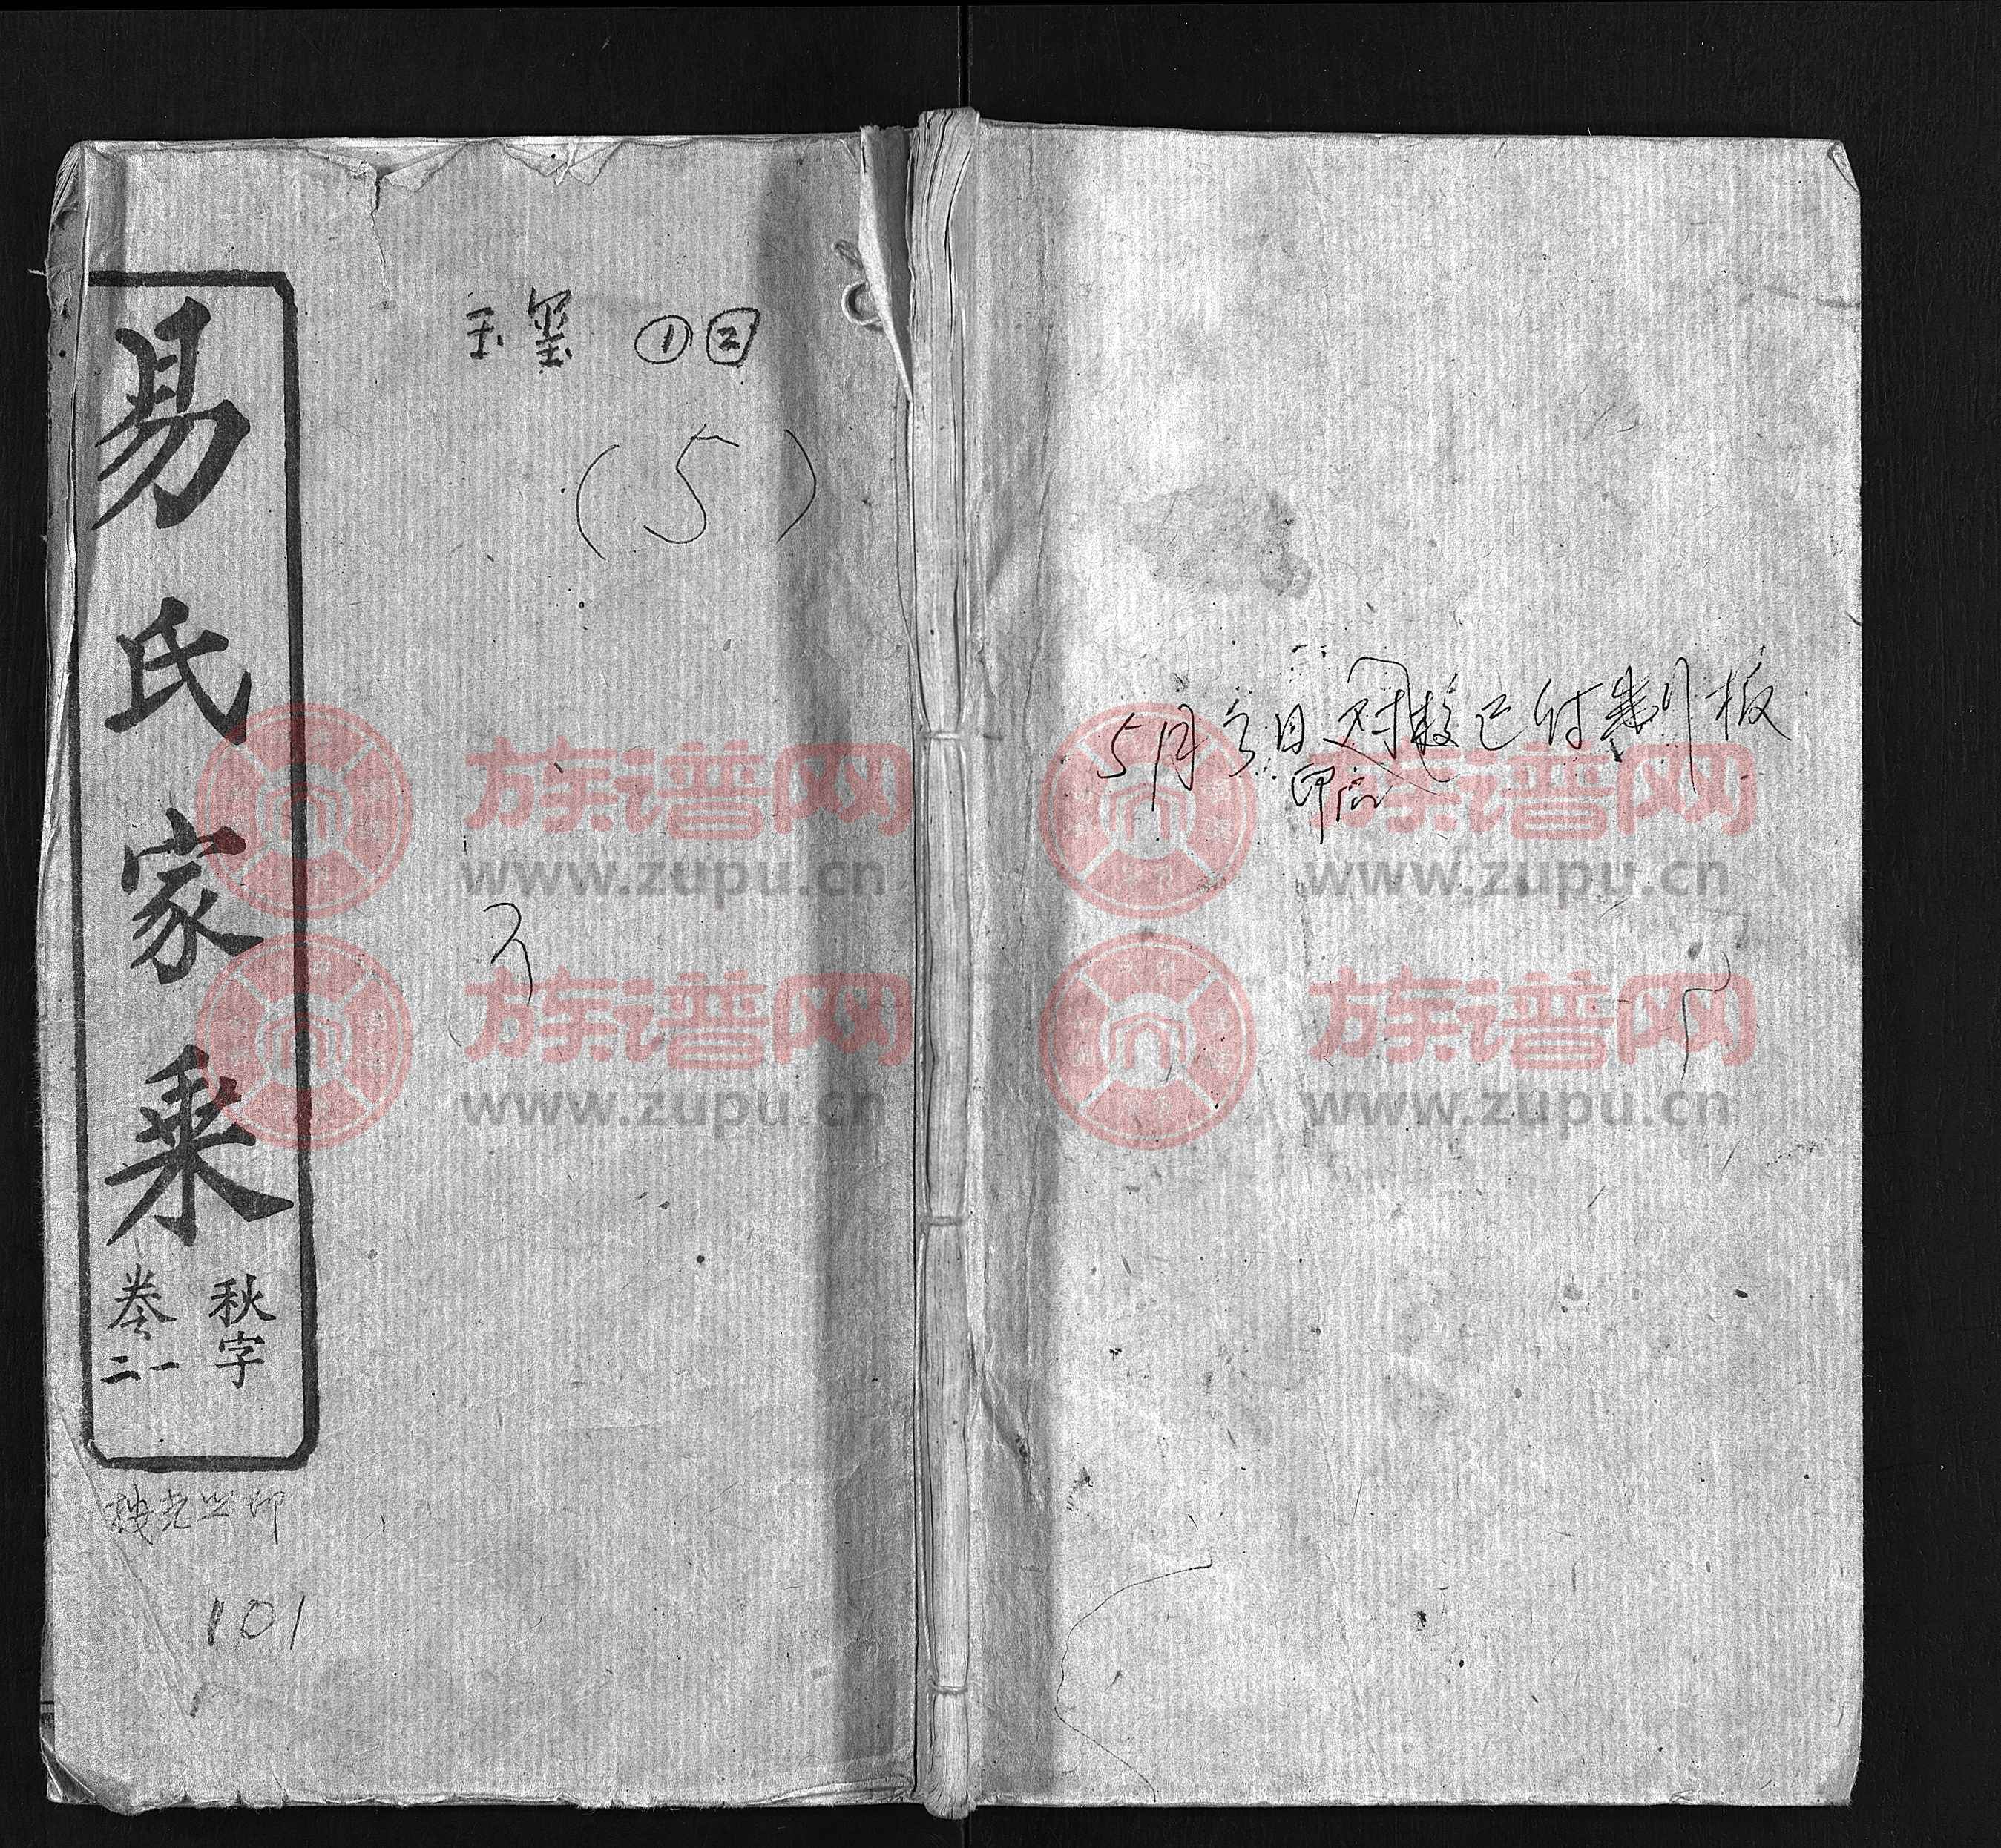 易氏家乘
秋字
卷一二
玉墨 ① 2
(5)
101
5月3日对校已付制板
印后
族谱网
www.zupu.cn
族谱网
www.zupu.cn
族谱网
www.zupu.cn
族谱网
www.zupu.cn